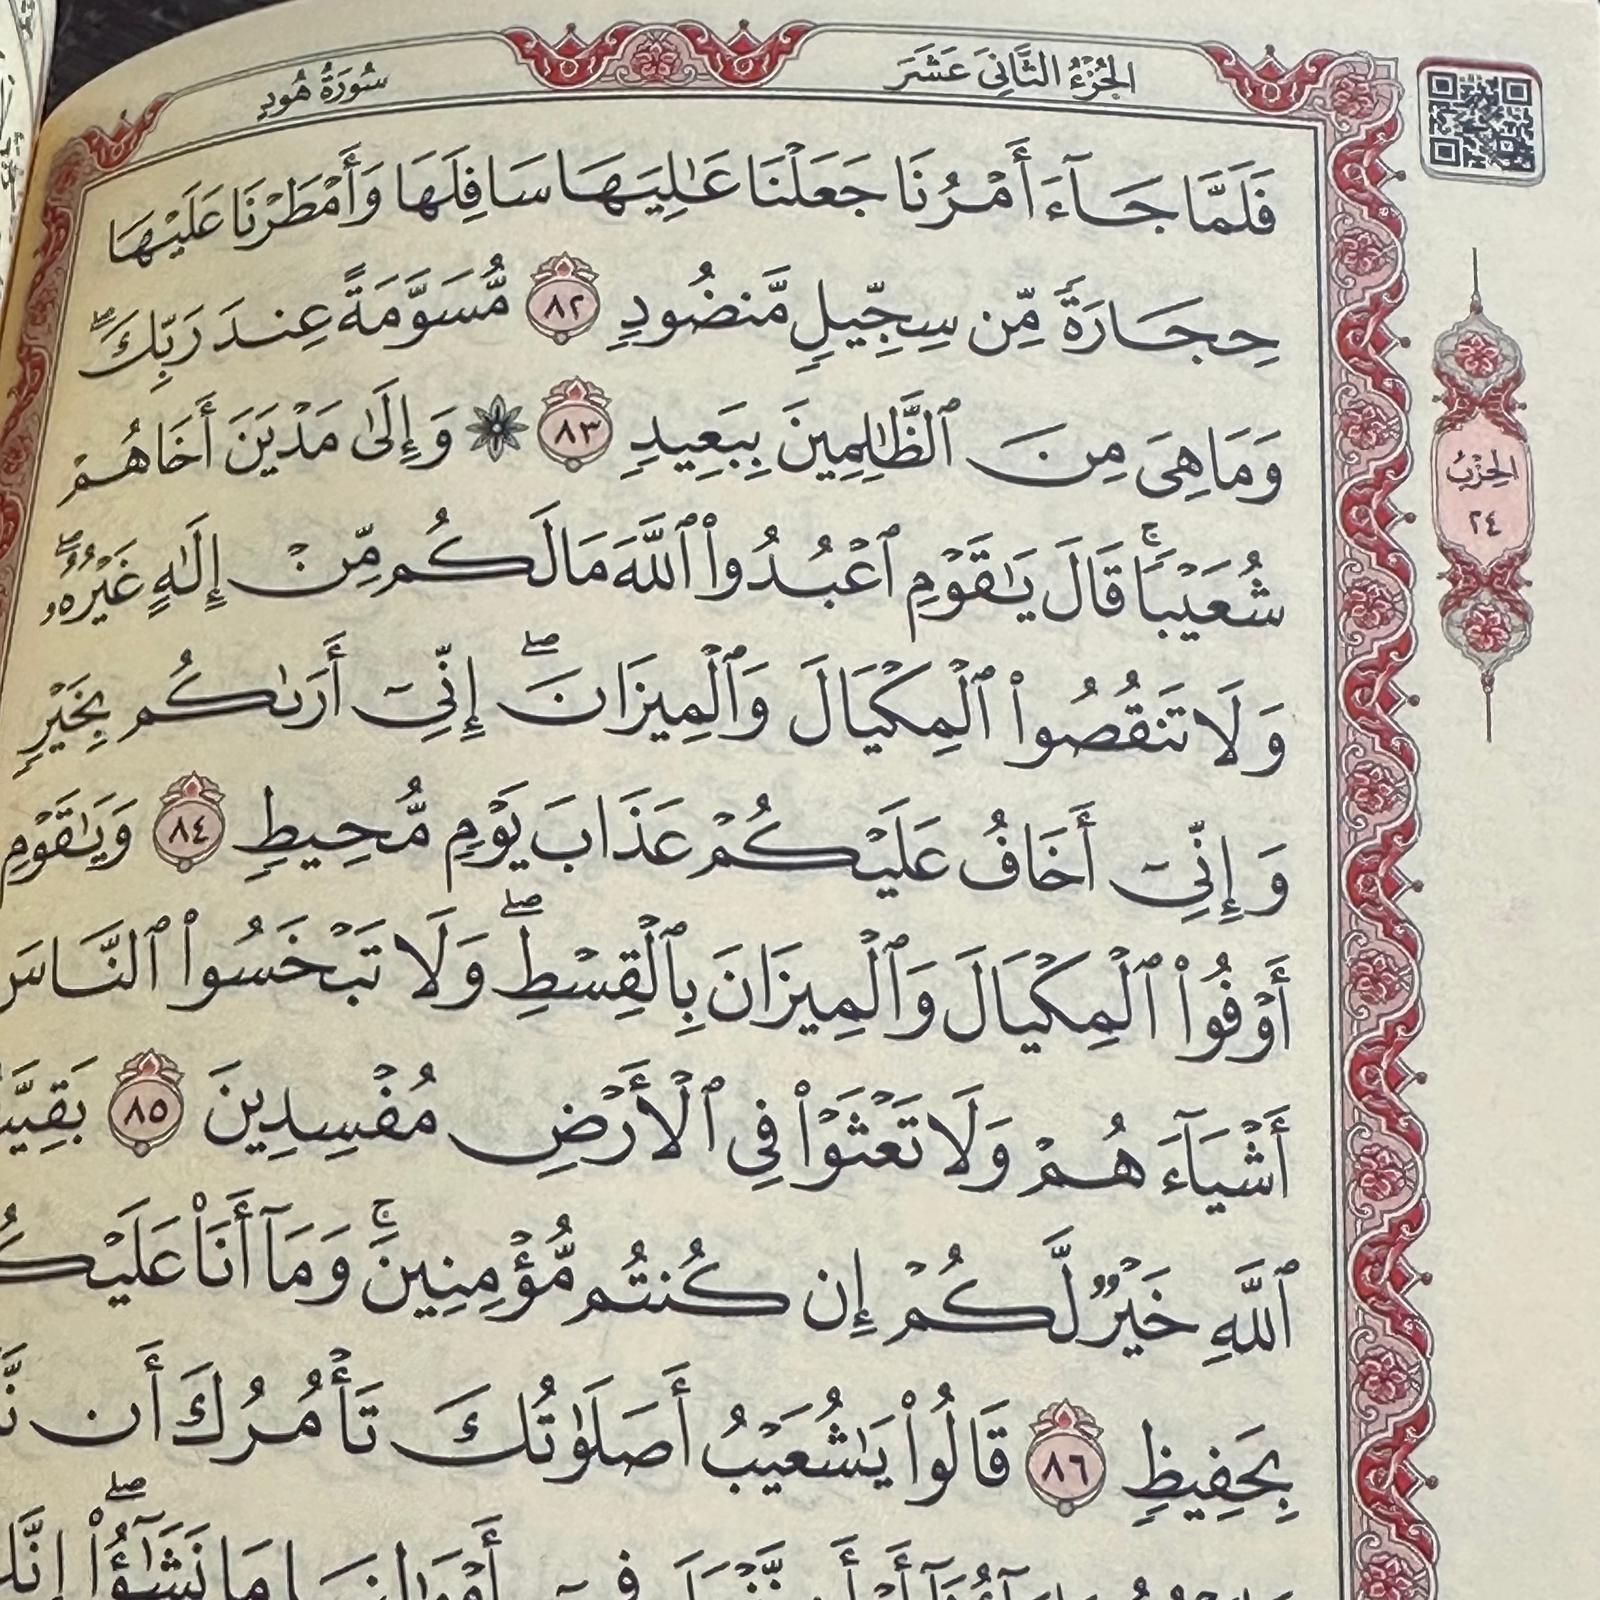 الجُزْءُ الثَّانِيَ عَشَرَ
سُورَةُ هُودٍ
فَلَمَّا جَآءَ أَمْرُنَا جَعَلْنَا عَٰلِيَهَا سَافِلَهَا وَأَمْطَرْنَا عَلَيْهَا
حِجَارَةً مِّن سِجِّيلٍ مَّنضُودٍ ٨٢ مُّسَوَّمَةً عِندَ رَبِّكَۖ
وَمَا هِيَ مِنَ ٱلظَّٰلِمِينَ بِبَعِيدٍ ٨٣ ۞ وَإِلَىٰ مَدْيَنَ أَخَاهُمْ
شُعَيْبًاۚ قَالَ يَٰقَوْمِ ٱعْبُدُوا۟ ٱللَّهَ مَا لَكُم مِّنْ إِلَٰهٍ غَيْرُهُۥۖ
وَلَا تَنقُصُوا۟ ٱلْمِكْيَالَ وَٱلْمِيزَانَۖ إِنِّىٓ أَرَىٰكُم بِخَيْرٍ
وَإِنِّىٓ أَخَافُ عَلَيْكُمْ عَذَابَ يَوْمٍ مُّحِيطٍ ٨٤ وَيَٰقَوْمِ
أَوْفُوا۟ ٱلْمِكْيَالَ وَٱلْمِيزَانَ بِٱلْقِسْطِۖ وَلَا تَبْخَسُوا۟ ٱلنَّاسَ
أَشْيَآءَهُمْ وَلَا تَعْثَوْا۟ فِى ٱلْأَرْضِ مُفْسِدِينَ ٨٥
ٱللَّهِ خَيْرٌ لَّكُمْ إِن كُنتُم مُّؤْمِنِينَۚ وَمَآ أَنَا۠
بِحَفِيظٍ ٨٦ قَالُوا۟ يَٰشُعَيْبُ أَصَلَوٰتُكَ تَأْمُرُكَ أَن
مَا نَشَٰٓؤُا۟ۖ
الحِزْبُ
٢٤